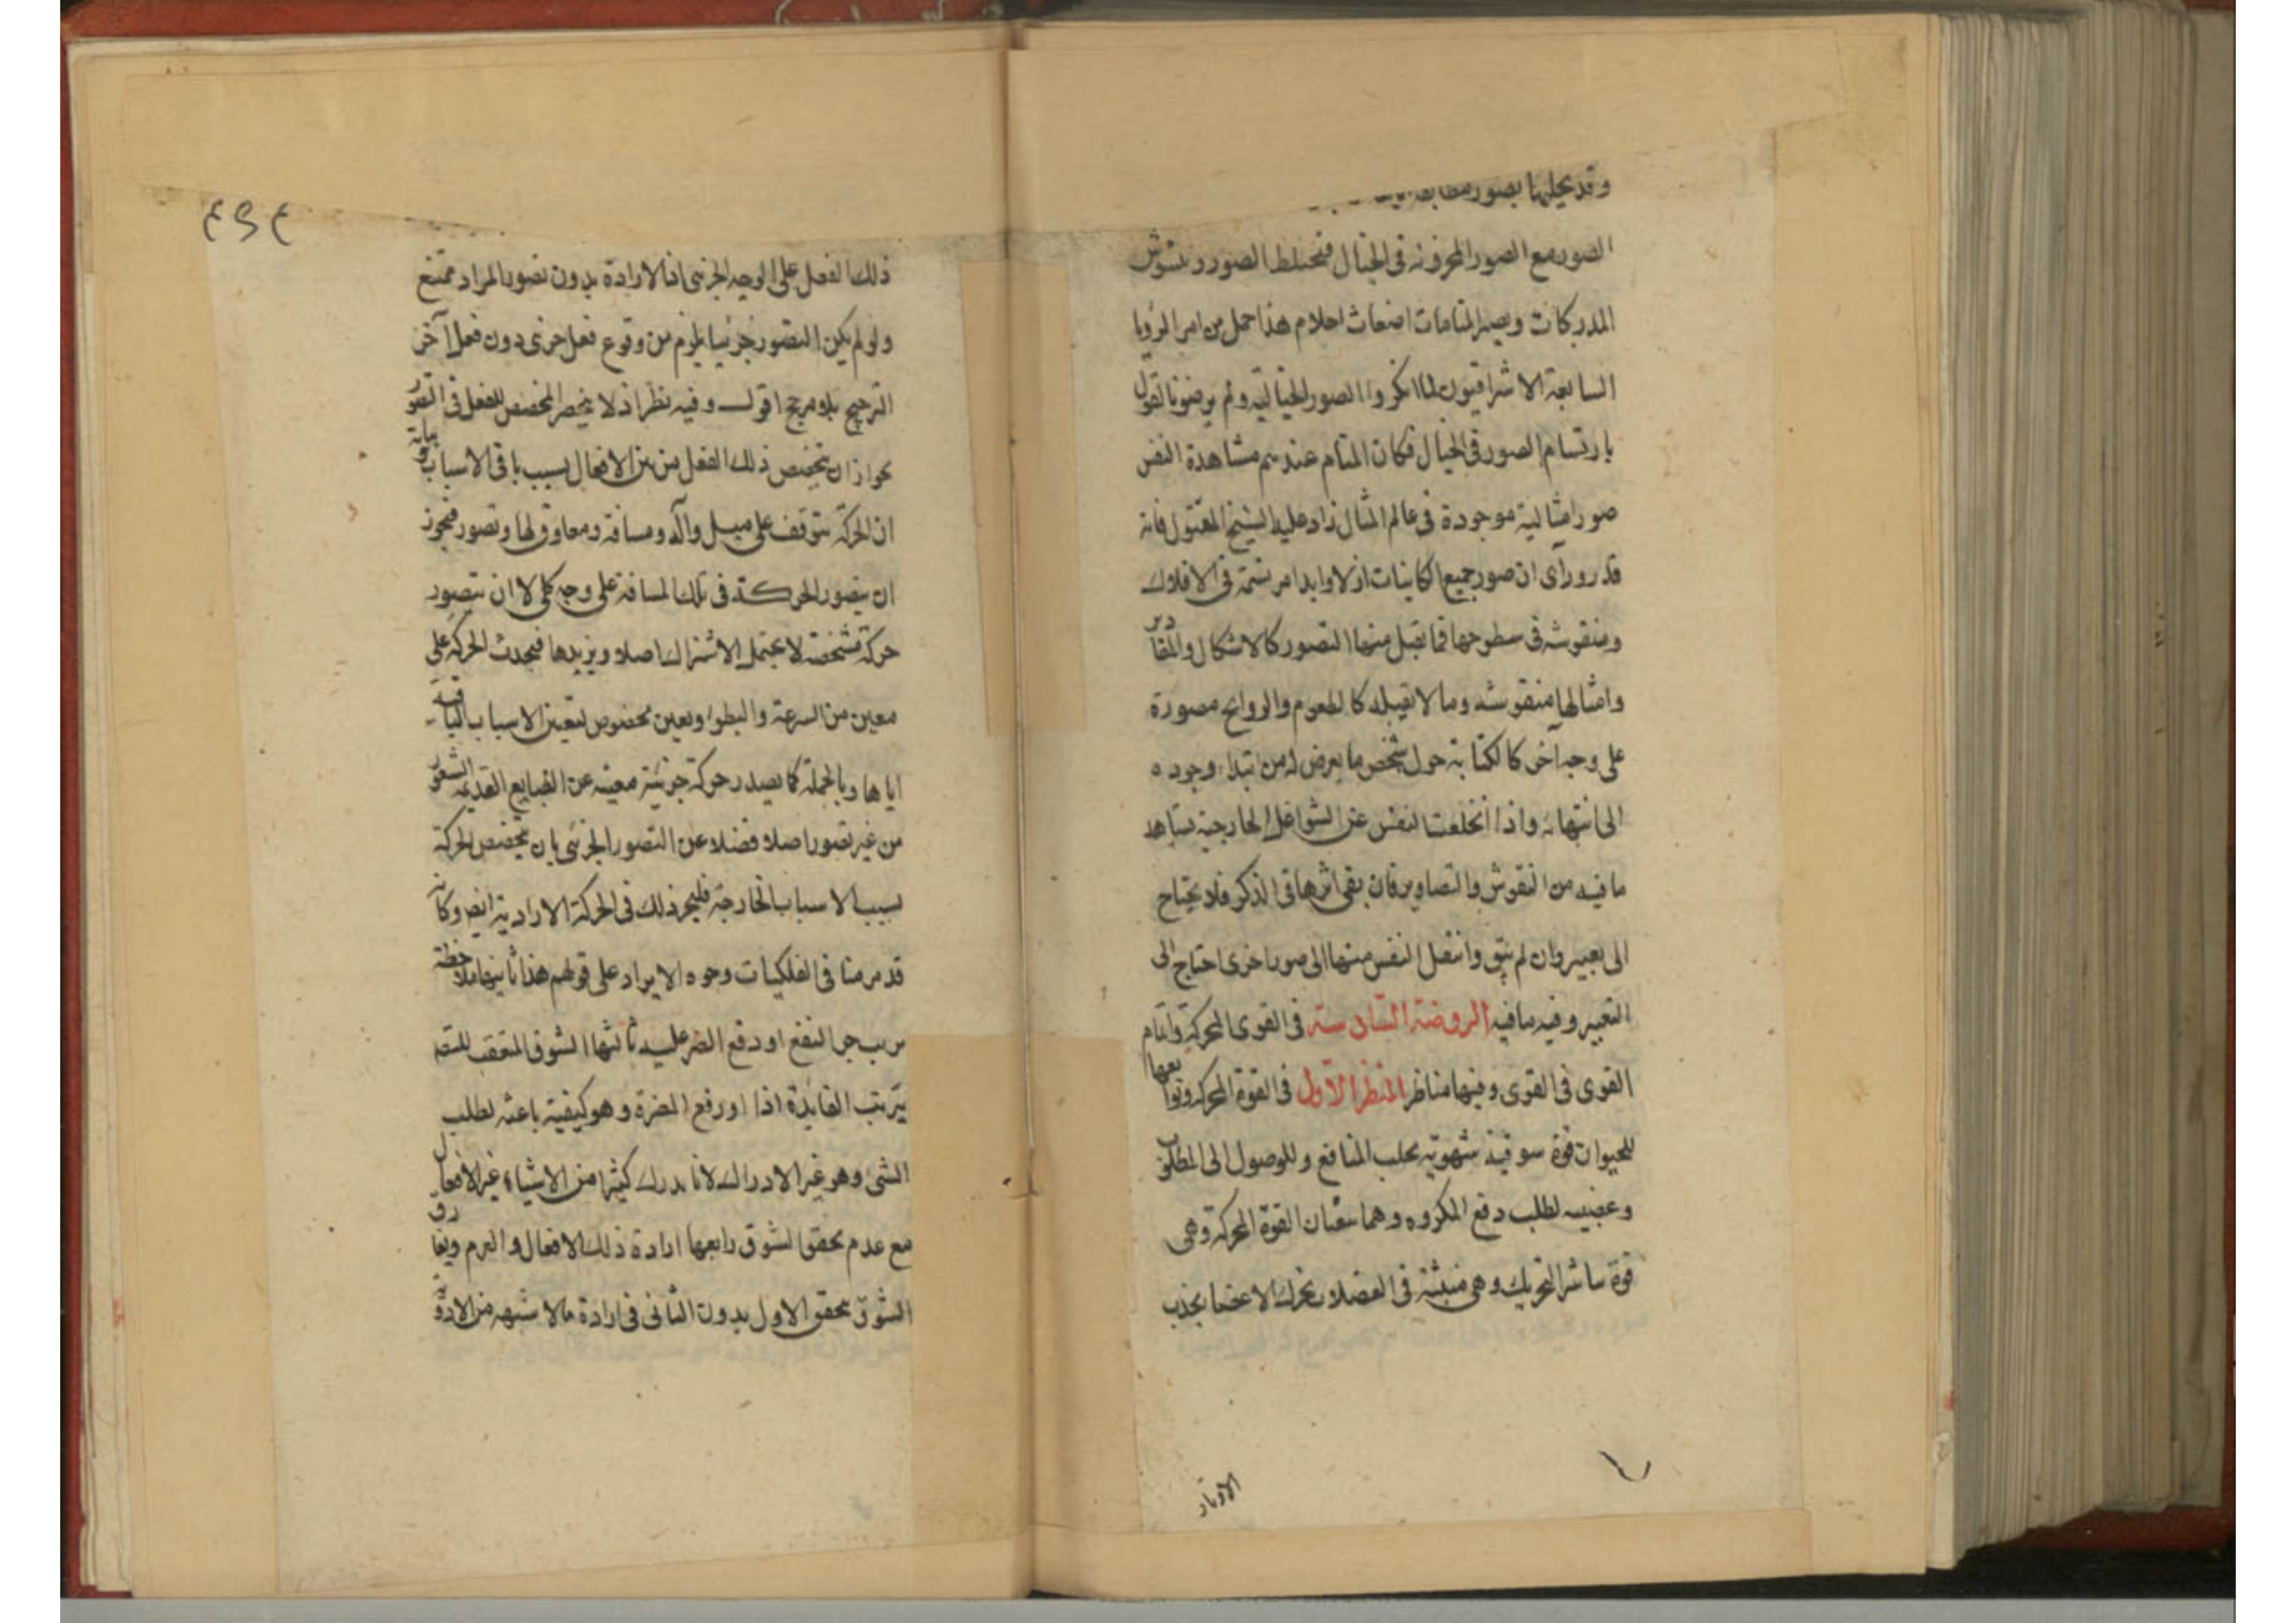 وقد يحليها بصور
الصور مع الصور المخزونة في الخيال فتختلط الصور ويتشوش
المدركات ويصير المنامات اضغاث احلام هذا حمل من امر الرؤيا
السابعة الاشراقيون لما انكروا الصور الخيالية ولم يرضوا بالقول
بارتسام الصور في الخيال فكان المنام عندهم مشاهدة النفس
صورا مثالية موجودة في عالم المثال زاد عليه الشيخ المقتول فانه
قد رأى ان صور جميع الكاينات ازلا وابدا مرتسمة في الافلاك
ومنقوشه في سطوحها فما يقبل منها التصور كالاشكال والمقادير
وامثالها منقوشه وما لا يقبله كالطعوم والروايح مصورة
على وجه آخر كالكتابة حول شخص ما يعرض له من ابتداء وجوده
الى انتهائه واذا انخلعت النفس عن الشواغل الخارجية شاهد
ما فيه من النقوش والتصاوير فان بقى اثرها في الذكر فلا يحتاج
الى تعبير وان لم يبق وانتقل النفس منها الى صور اخرى احتاج الى
التعبير وفيه ما فيه الروضة السادسة في القوى المحركة واتمام
القوى في القوى وفيها مناظر المنظر الاول في القوة المحركة وتوابعها
للحيوان قوة شوقية شهوية يجلب المنافع وللوصول الى المطلوب
وغضبيه لطلب دفع المكروه وهما يبعثان القوة المحركة وهي
قوة تباشر التحريك وهي منبثة في العضلات يحرك الاعضا بجذب
الاوتار
٤٩٤
ذلك الفعل على الوجه الجزئى اذ الارادة بدون تصور المراد ممتنع
ولو لم يكن التصور جزئيا يلزم من وقوع فعل جزئى دون فعل آخر
الترجيح بلا مرجح اقول وفيه نظر اذ لا ينحصر المخصص للفعل في التصور
بجواز ان يتخصص ذلك الفعل من بين الافعال بسبب باقى الاسباب بيانه
ان الحركة يتوقف على ميل وآلة ومسافة ومعاوق لها وتصور فيجوز
ان يتصور الحركة في تلك المسافة على وجه كلى لا ان يتصور
حركة مشخصة لا يحتمل الاشتراك اصلا ويزيدها فيحدث الحركة على
معين من السرعة والبطوء وتعين مخصوص لتعين الاسباب الباقية
اياها وبالجملة كما يصدر حركة جزئية معينه عن الطبايع القديمة الشعور
من غير تصور اصلا فضلا عن التصور الجزئى بان يخصص الحركة
بسبب الاسباب الخارجة فليجز ذلك في الحركة الارادية ايضا وكانه
قد مر منا في الفلكيات وجوه الايراد على قولهم هذا ثانيها ملاحظة
جر النفع او دفع الضر عليه ثالثها الشوق المتعقب للتصديق
يترتب الفايدة اذا او رفع المضرة وهو كيفية باعثه لطلب
الشئ وهو غير الادراك لانا ندرك كثيرا من الاشياء غير الافعال
مع عدم تحقق الشوق رابعها ارادة ذلك الافعال والعزم ويفارق
الشوق تحقق الاول بدون الثانى في ارادة ما لا شبهه من الادوية